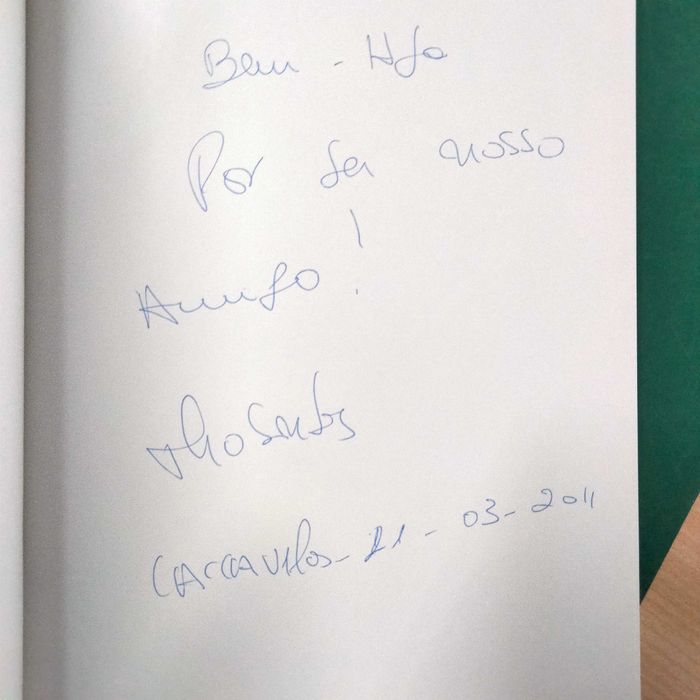 Bem-Hja
Por ser nosso
Amigo!
Carcavelos - 21 - 03 - 2011